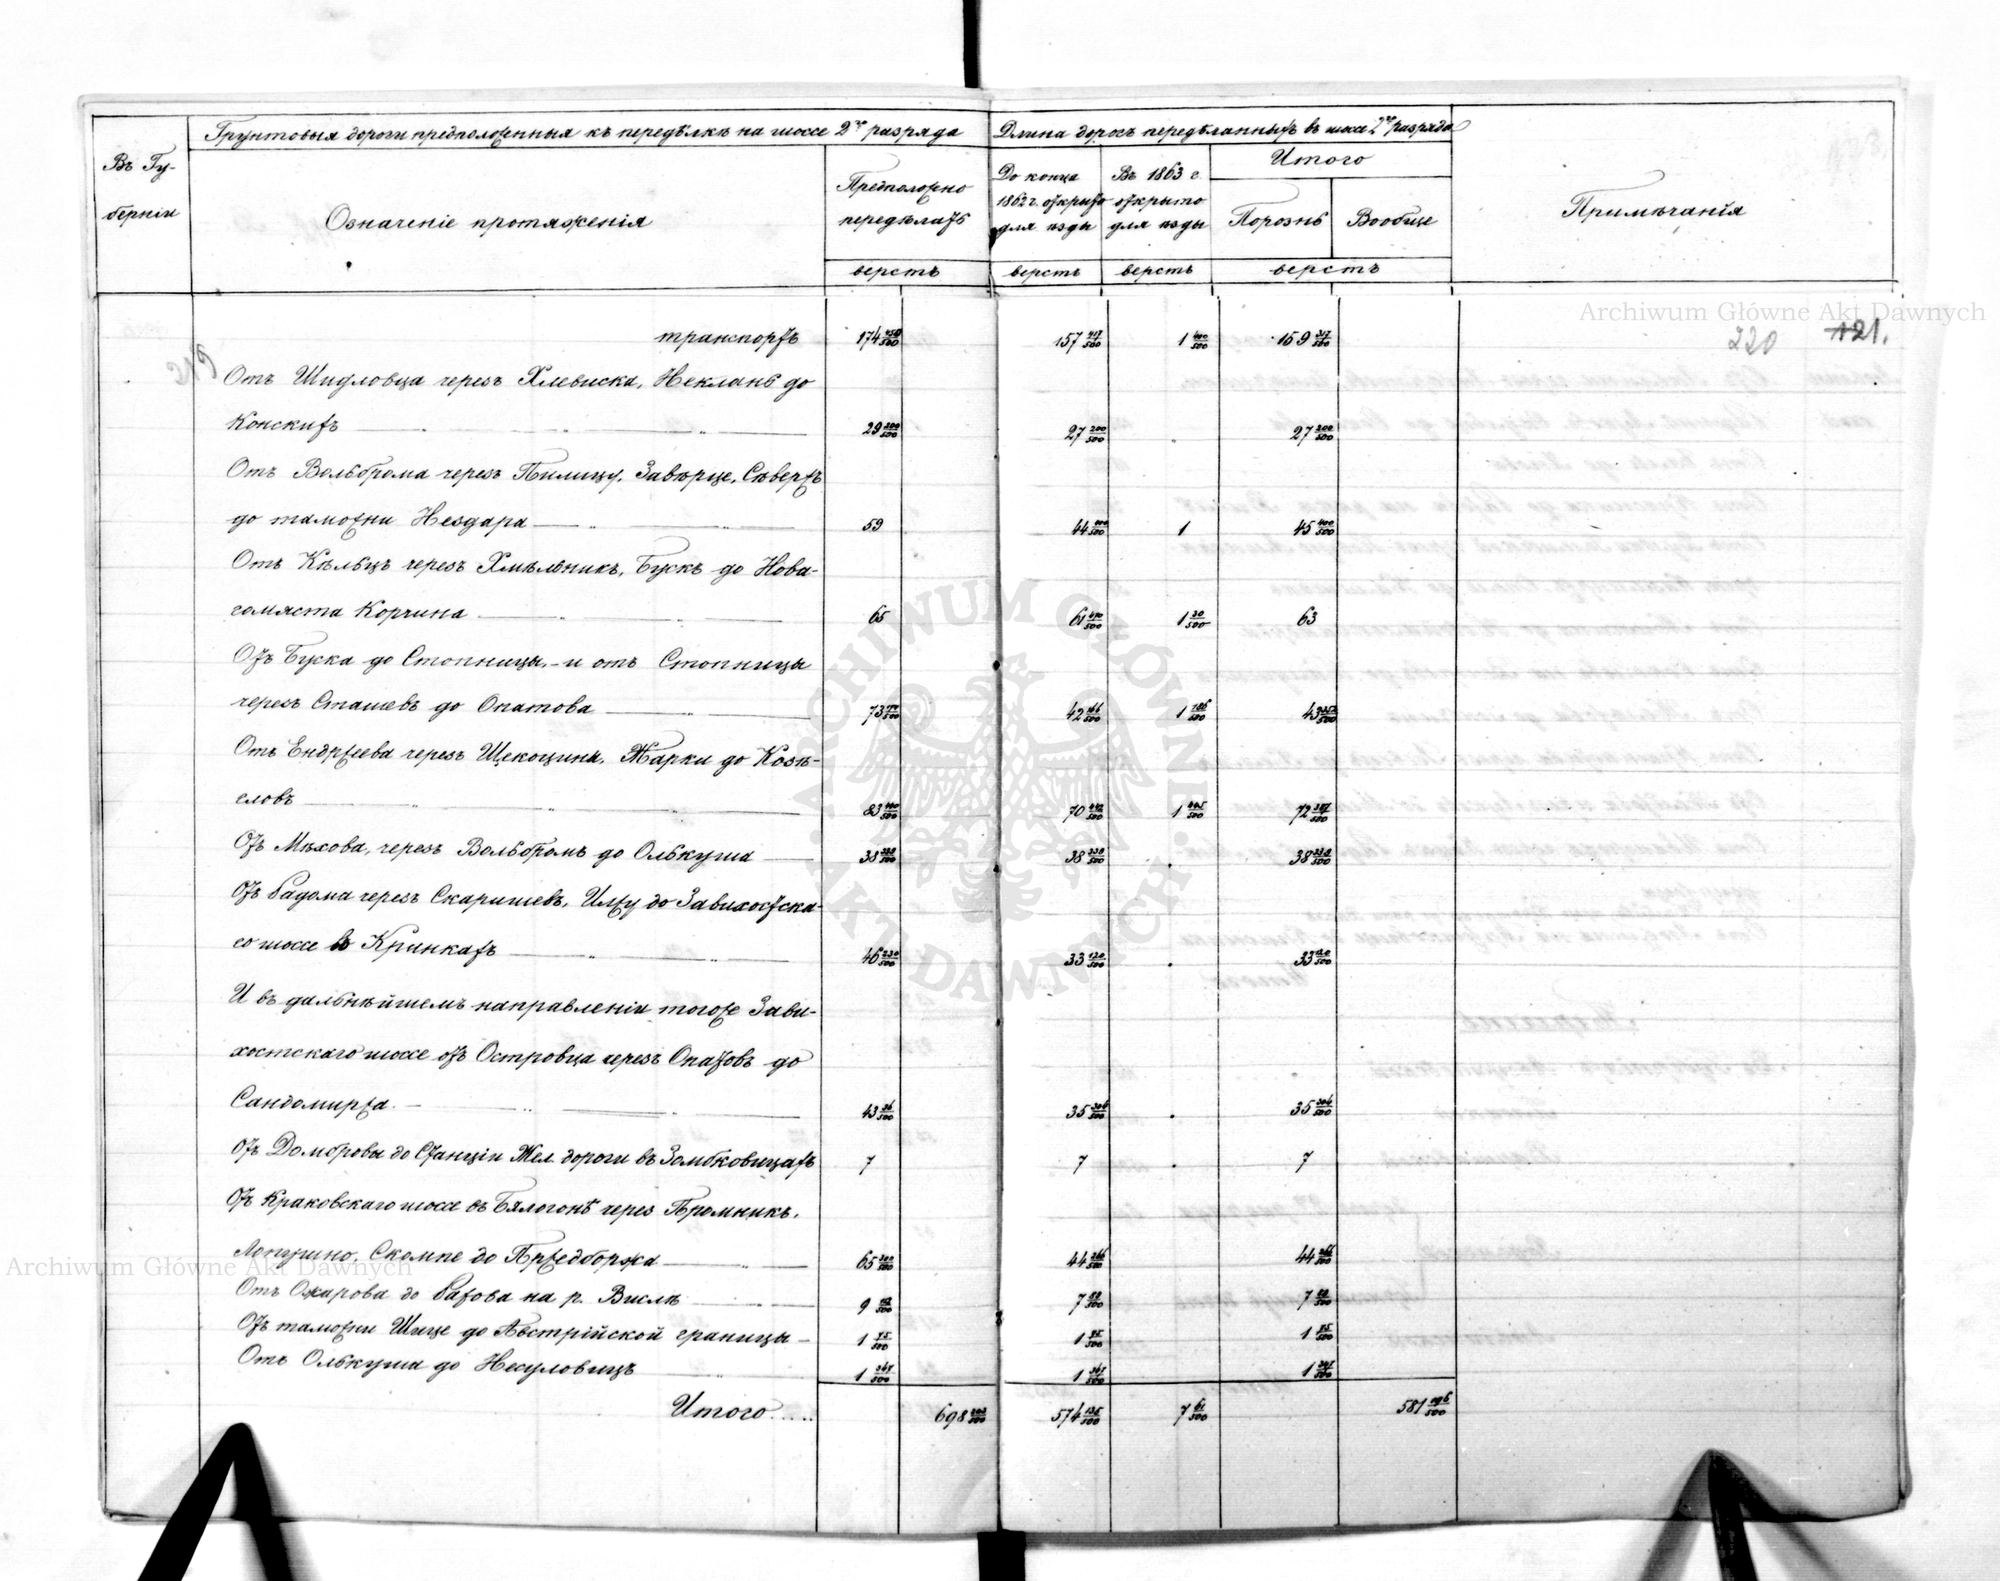 Въ Гу-
берніи
Грунтовыя дороги предположенныя къ передѣлкѣ на шоссе 2го разряда
Означеніе протяженія
Предположено
передѣлать
верстъ
Длина дорогъ передѣланныхъ въ шоссе 2го разряда
До конца
1862 г. открыто
для ѣзды
верстъ
Въ 1863 г.
открыто
для ѣзды
верстъ
Итого
Порознь
Вообще
верстъ
Примѣчанія
Archiwum Główne Akt Dawnych
220 121.
транспортъ 174 450/500 157 417/500 1 400/500 159 317/500
Отъ Шидловца черезъ Хлевиска, Некланъ до
Конскихъ 29 200/500 27 200/500 27 200/500
Отъ Вольброма черезъ Пилицу, Завѣрце, Сѣвержъ
до таможни Нездара 59 44 400/500 1 45 400/500
Отъ Кѣльцъ черезъ Хмѣльникъ, Бускъ до Нова-
гомяста Корчина 65 61 470/500 1 30/500 63
Отъ Буска до Стопницы, и отъ Стопницы
черезъ Сташевъ до Опатова 73 42 166/500 1 186/500 43 352/500
Отъ Енджеева черезъ Щекоцины, Жарки до Козѣ-
гловъ 83 400/500 70 442/500 1 445/500 72 387/500
Отъ Мѣхова, черезъ Вольбромъ до Олькуша 38 338/500 38 338/500 38 338/500
Отъ Радома черезъ Скаришевъ, Илжу до Завихостска-
го шоссе въ Кринкахъ 46 230/500 33 120/500 33 120/500
И въ дальнѣйшемъ направленіи тогоже Зави-
хостскаго шоссе отъ Островца черезъ Опатовъ до
Сандомиржа. 43 36/500 35 304/500 35 304/500
Отъ Домбровы до Станціи Жел. дороги въ Зомбковицахъ 7 7 7
Отъ Краковскаго шоссе въ Бялогонѣ черезъ Промникъ,
Лопушно, Скомпе до Пржедборжа 65 200/500 44 266/500 44 266/500
Отъ Ожарова до Рахова на р. Вислѣ 9 7 7
Отъ таможни Шице до Австрійской границы 1 75/500 1 75/500 1 75/500
Отъ Олькуша до Несуловицъ 1 347/500 1 347/500 1 347/500
Итого 698 574 135/500 7 61/500 581 196/500
ARCHIWUM GŁÓWNE
AKT DAWNYCH
Archiwum Główne Akt Dawnych